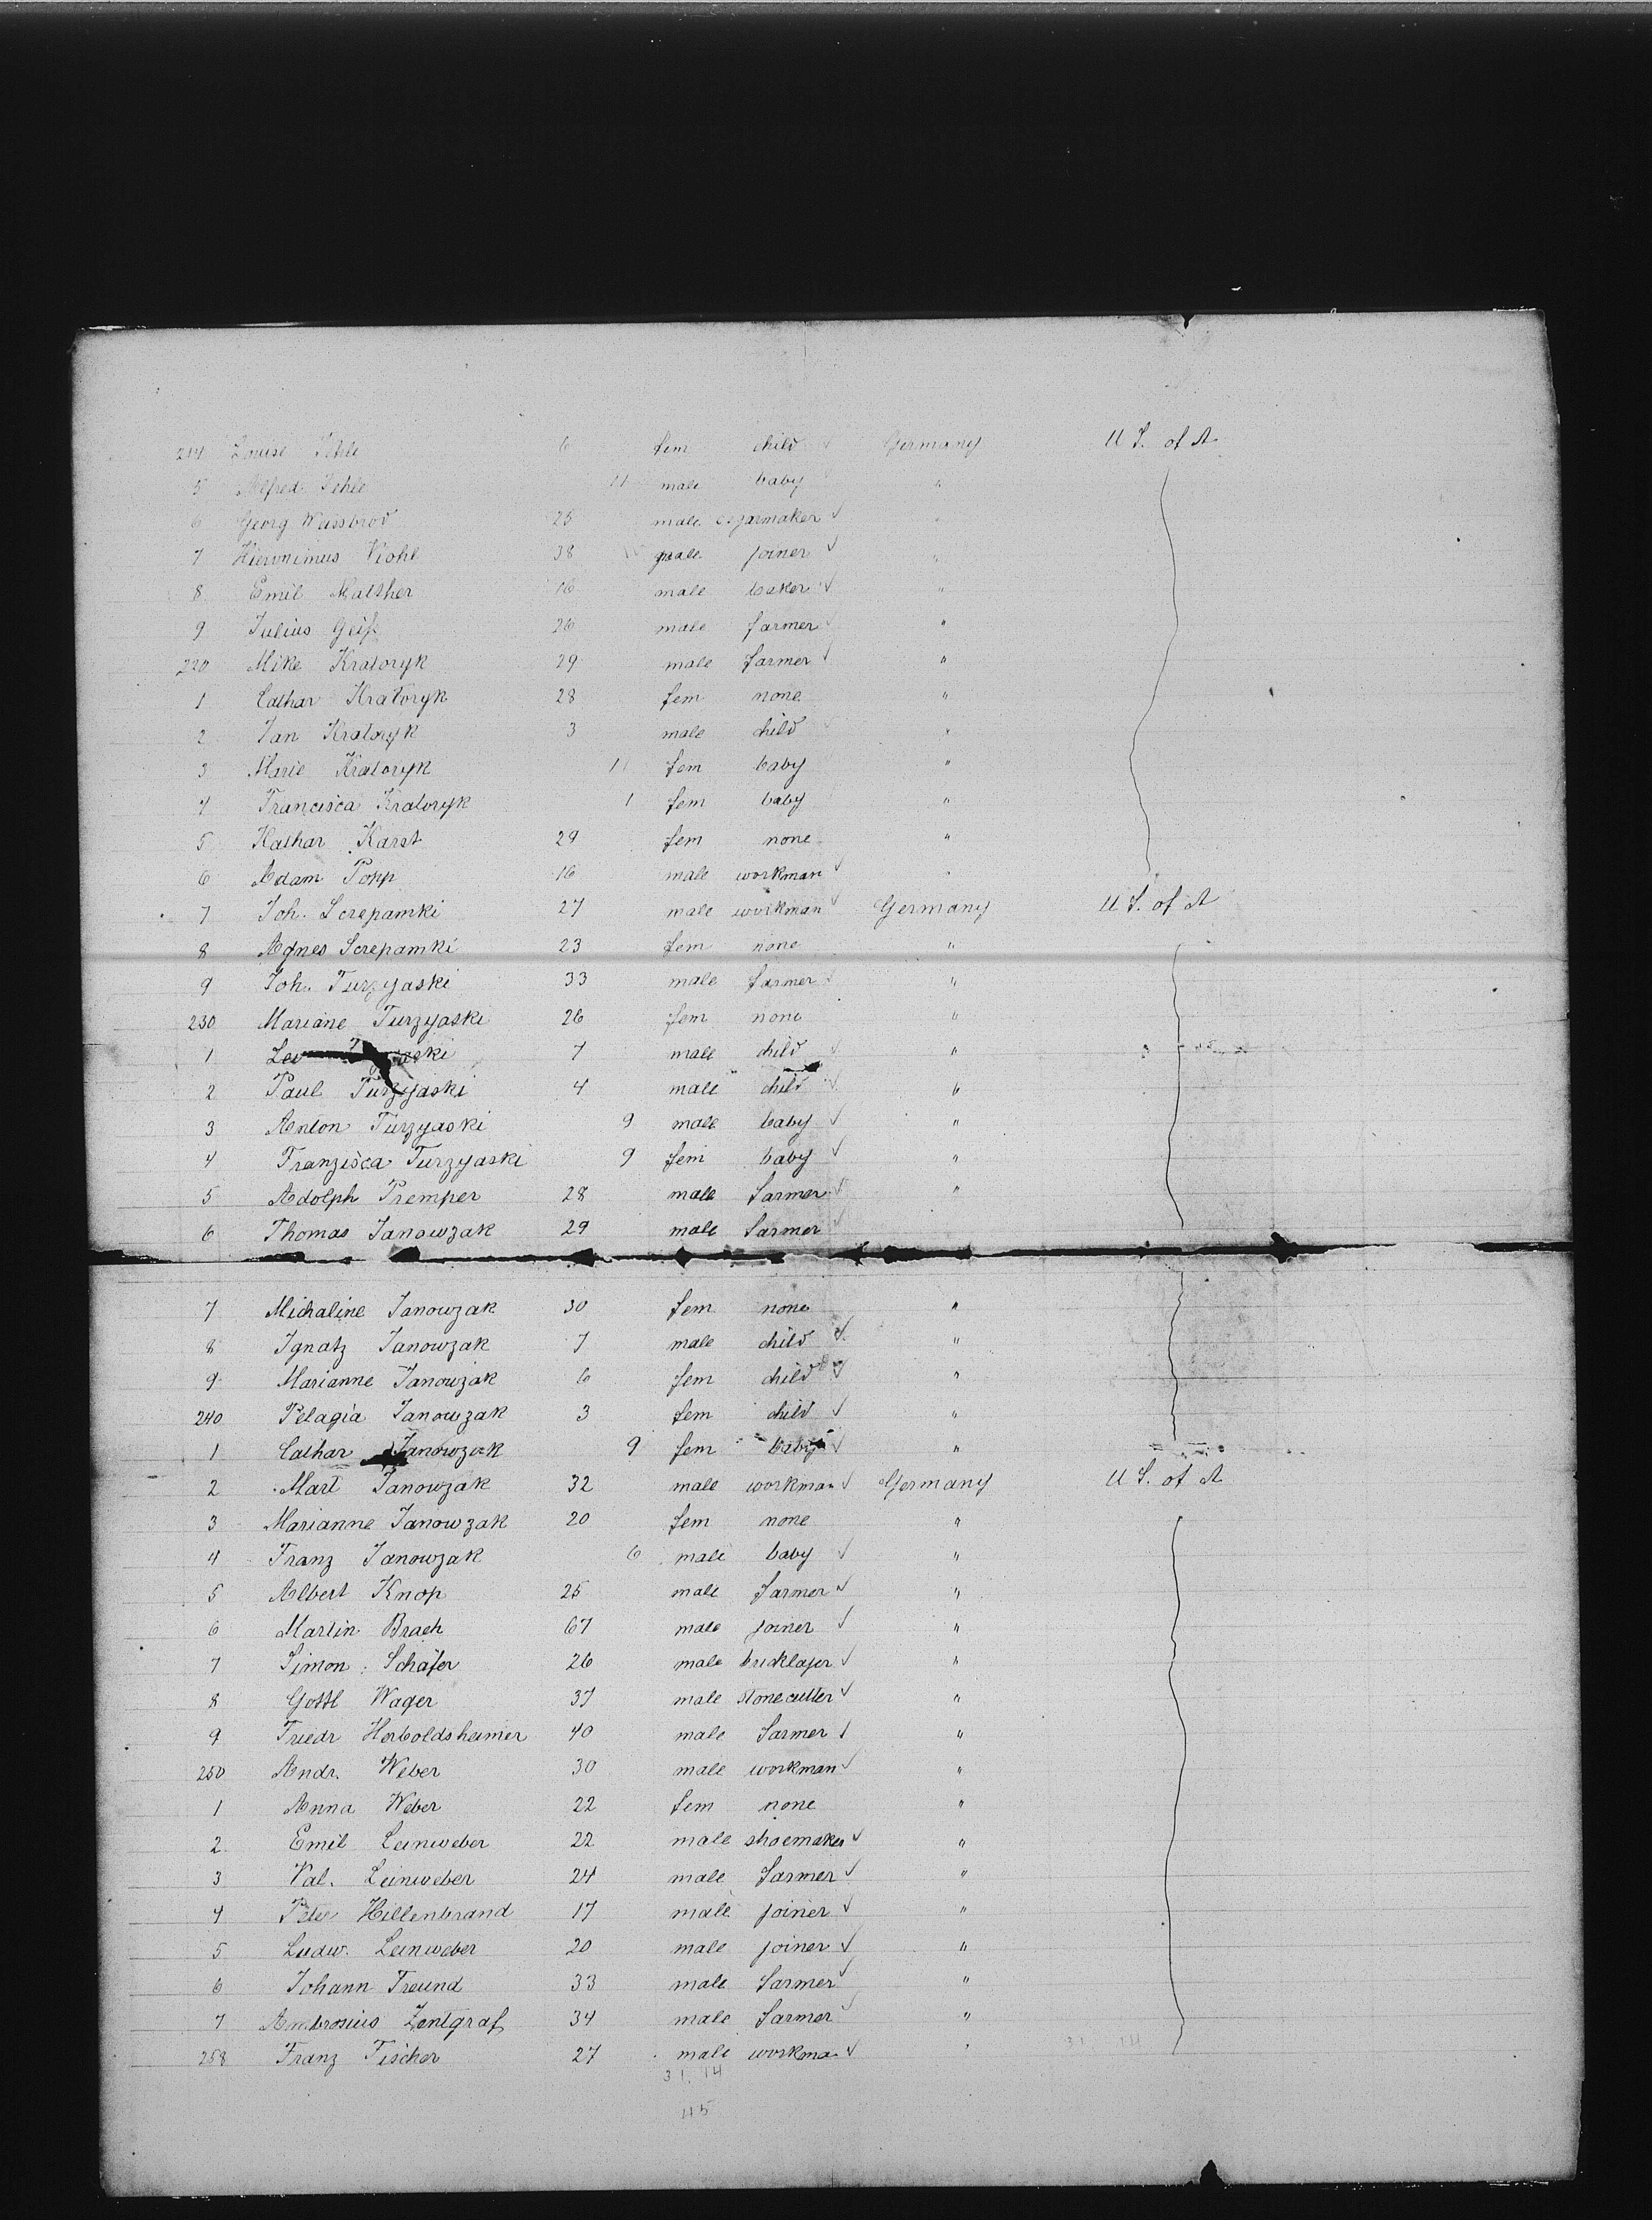 214 Louise Jehle 6 fem child ✓ Germany U S. of A
5 Alfred Jehle 11 male baby "
6 Georg Weissbrod 25 male cigarmaker ✓ "
7 Hieronimus Viohl 38 male joiner ✓ "
8 Emil Malther 16 male baker ✓ "
9 Julius Geiß 26 male farmer ✓ "
220 Mike Kratoryk 29 male farmer ✓ "
1 Cathar Kratoryk 28 fem none "
2 Jan Kratoryk 3 male child "
3 Marie Kratoryk 11 fem baby "
4 Francisca Kratoryk 1 fem baby "
5 Kathar Karst 29 fem none "
6 Adam Popp 16 male workman ✓ "
7 Joh. Screpamki 27 male workman ✓ Germany U S. of A
8 Agnes Screpamki 23 fem none "
9 Joh. Turzyaski 33 male farmer ✓ "
230 Mariane Turzyaski 26 fem none "
1 7 male child ✓ "
2 Paul Turzyaski 4 male child ✓ "
3 Anton Turzyaski 9 male baby ✓ "
4 Franzisca Turzyaski 9 fem baby ✓ "
5 Adolph Premper 28 male farmer ✓ "
6 Thomas Janowzak 29 male farmer ✓
7 Michaline Janowzak 30 fem none "
8 Ignatz Janowzak 7 male child ✓ "
9 Marianne Janowzak 6 fem child ✓ "
240 Pelagia Janowzak 3 fem child ✓ "
1 Cathar Janowzak 9 fem baby ✓ "
2 Mart Janowzak 32 male workman ✓ Germany U S. of A
3 Marianne Janowzak 20 fem none "
4 Franz Janowzak 6 male baby ✓ "
5 Albert Knop 25 male farmer ✓ "
6 Martin Brach 67 male joiner ✓ "
7 Simon Schäfer 26 male bricklayer ✓ "
8 Gottl Wager 37 male stonecutter ✓ "
9 Friedr Herboldsheimer 40 male farmer ✓ "
250 Andr. Weber 30 male workman ✓ "
1 Anna Weber 22 fem none "
2 Emil Leinweber 22 male shoemaker ✓ "
3 Val. Leinweber 24 male farmer ✓ "
4 Peter Hillenbrand 17 male joiner ✓ "
5 Ludw. Leinweber 20 male joiner ✓ "
6 Johann Freund 33 male farmer ✓ "
7 Ambrosius Zentgraf 34 male farmer ✓ "
258 Franz Fischer 27 male workma ✓ " 31 14
31. 14
45